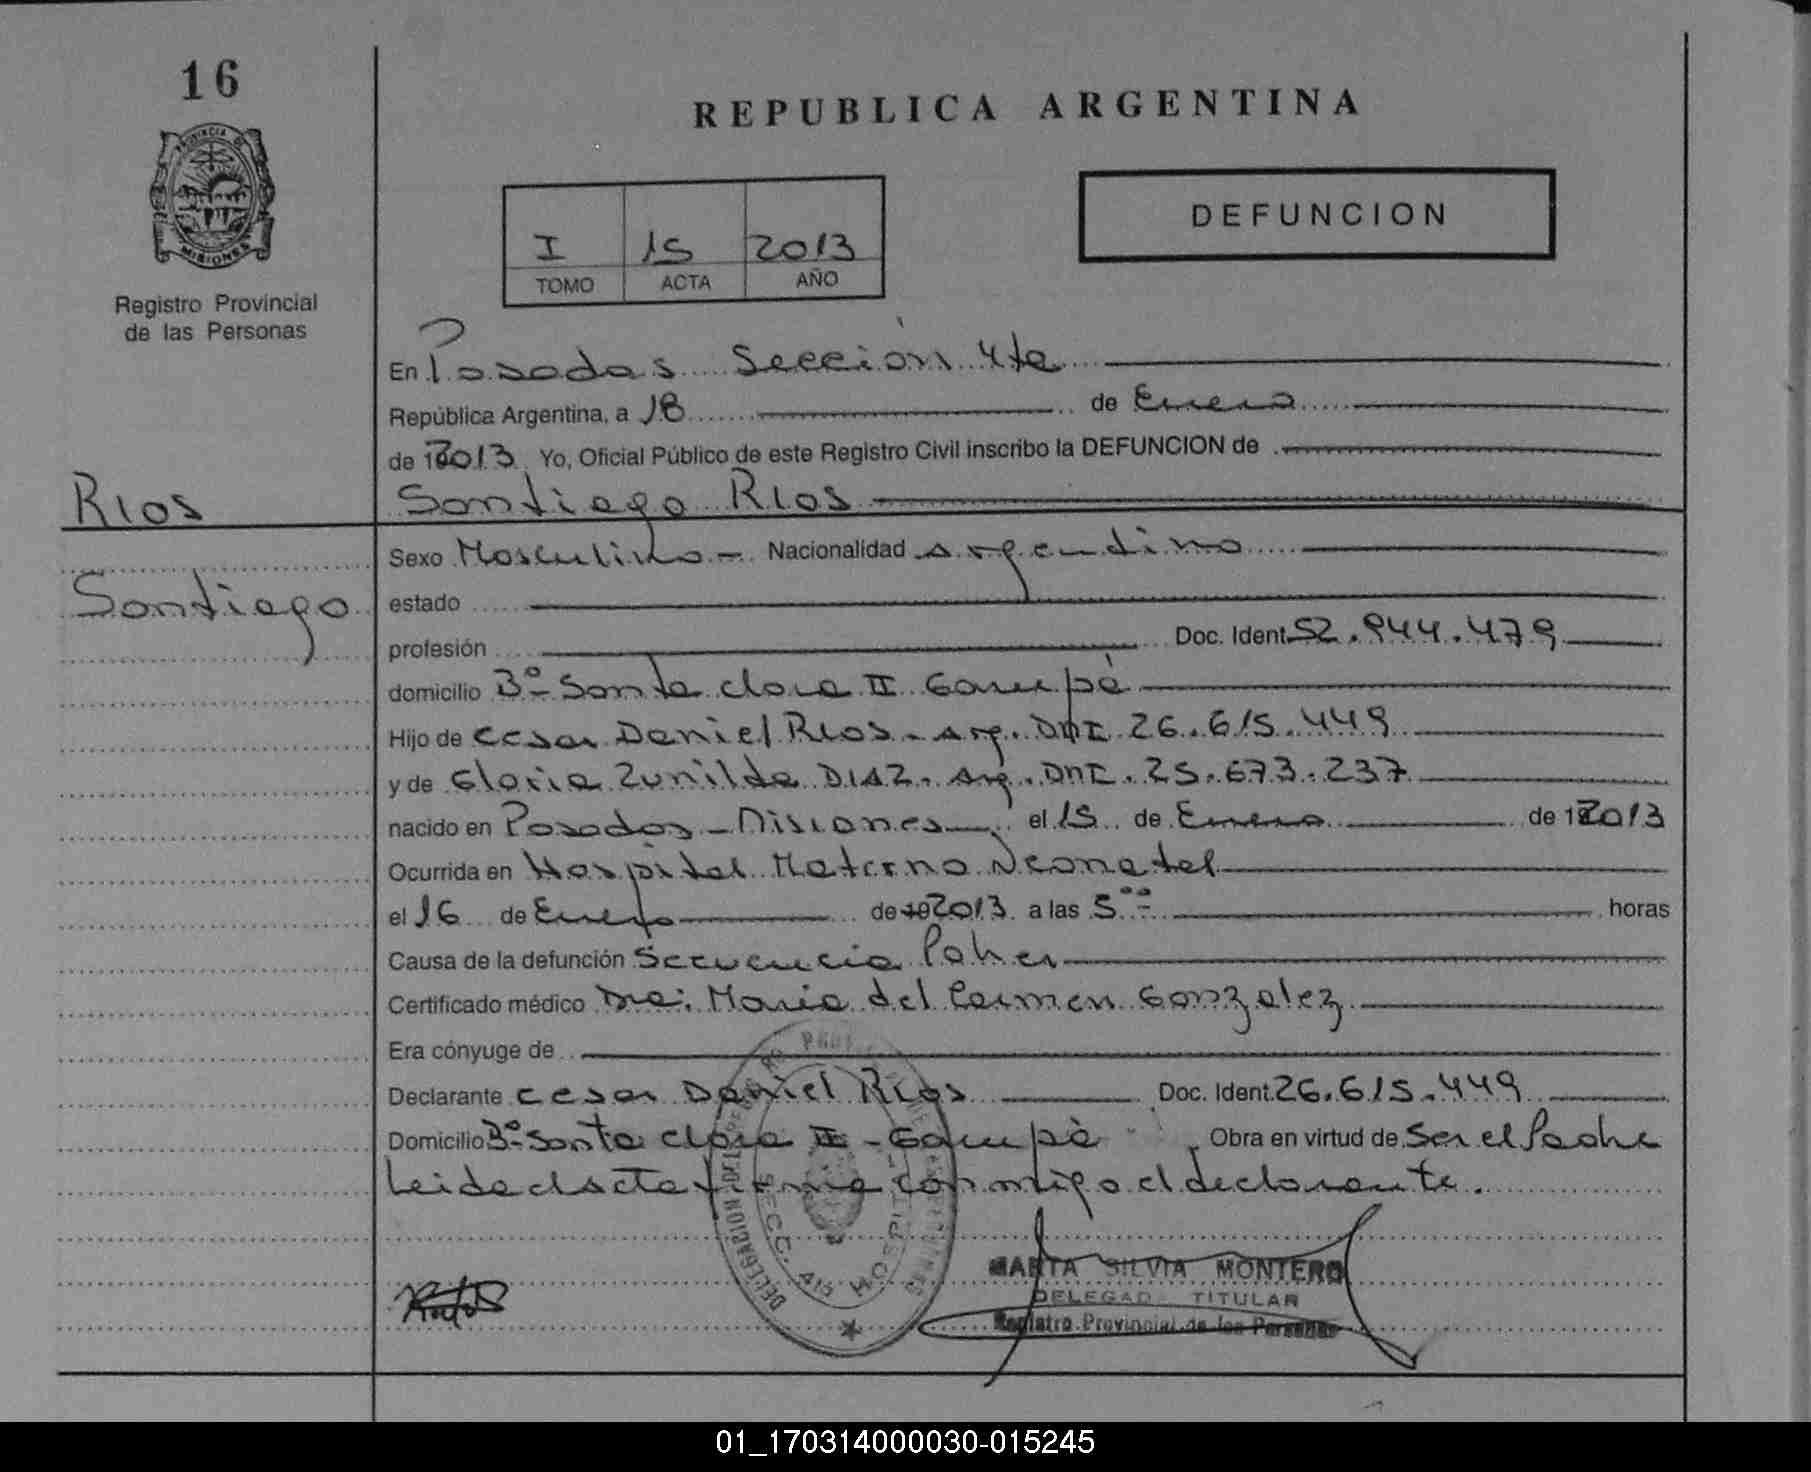 16
PROVINCIA DE
MISIONES
Registro Provincial
de las Personas
REPUBLICA ARGENTINA
DEFUNCION
I 15 2013
TOMO ACTA AÑO
En Posadas Sección 4ta
República Argentina, a 18 de Enero
de 2013 Yo, Oficial Público de este Registro Civil inscribo la DEFUNCION de
Rios
Santiago Rios
Sexo Masculino - Nacionalidad Argentino
Santiago
estado
profesión Doc. Ident. 52.944.479
domicilio Bº Santa Clara II Garupà
Hijo de Cesar Daniel Rios - Arg. DNI 26.615.449
y de Gloria Zunilda DIAZ. Arg. DNI. 25.673.237
nacido en Posadas - Misiones el 15 de Enero de 2013
Ocurrida en Hospital Materno Neonatal
el 16 de Enero de 2013 a las 5 horas
Causa de la defunción Secuencia Poher
Certificado médico Dra: Maria del Carmen Gonzalez
Era cónyuge de
Declarante Cesar Daniel Rios Doc. Ident. 26.615.449
Domicilio Bº Santa Clara II - Garupà Obra en virtud de Ser el Padre
Leida el acta firma conmigo el declarante.
MARTA SILVIA MONTERO
DELEGADA TITULAR
Registro Provincial de las Personas
01_170314000030-015245